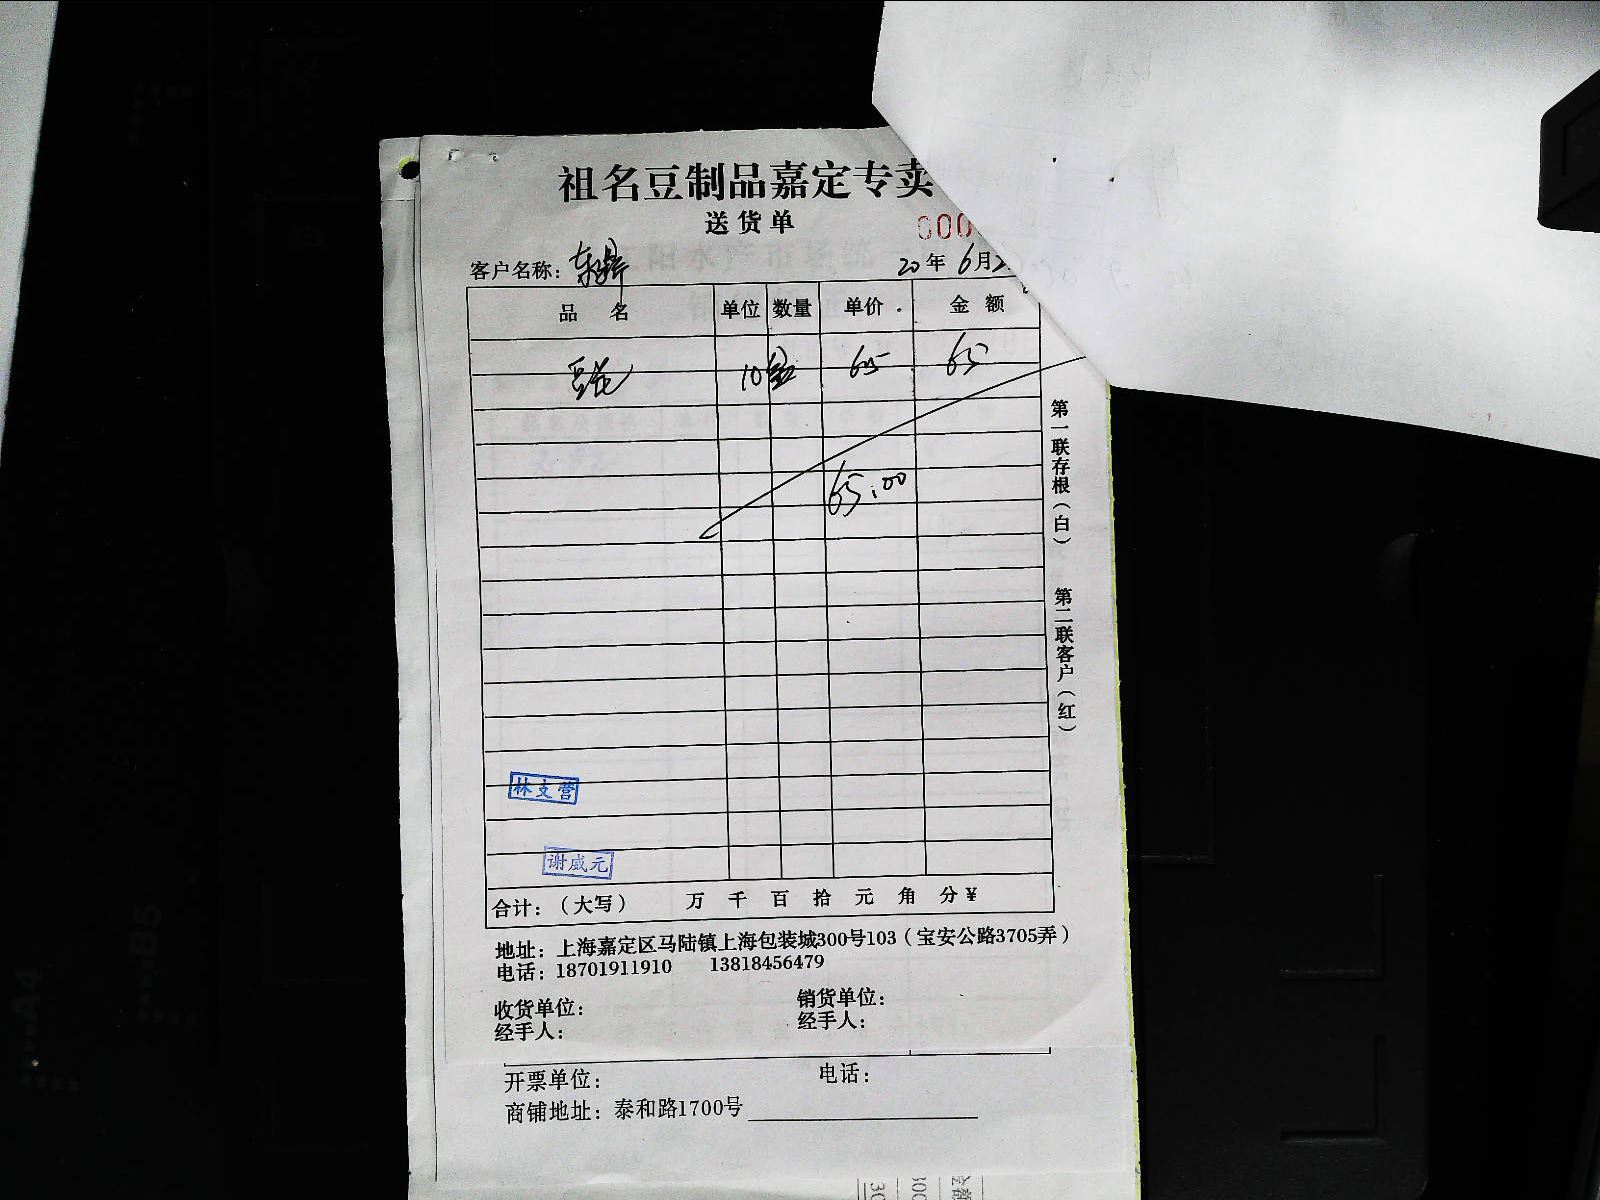 祖名豆制品嘉定专卖
送货单
000
客户名称：东鼎 20年6月2
品名 单位 数量 单价 金额
豆花 10盒 65 65
65.00
第一联存根（白） 第二联客户（红）
林支营
谢威元
合计：（大写） 万 千 百 拾 元 角 分¥
地址：上海嘉定区马陆镇上海包装城300号103（宝安公路3705弄）
电话：18701911910 13818456479
收货单位： 销货单位：
经手人： 经手人：
开票单位： 电话：
商铺地址：泰和路1700号